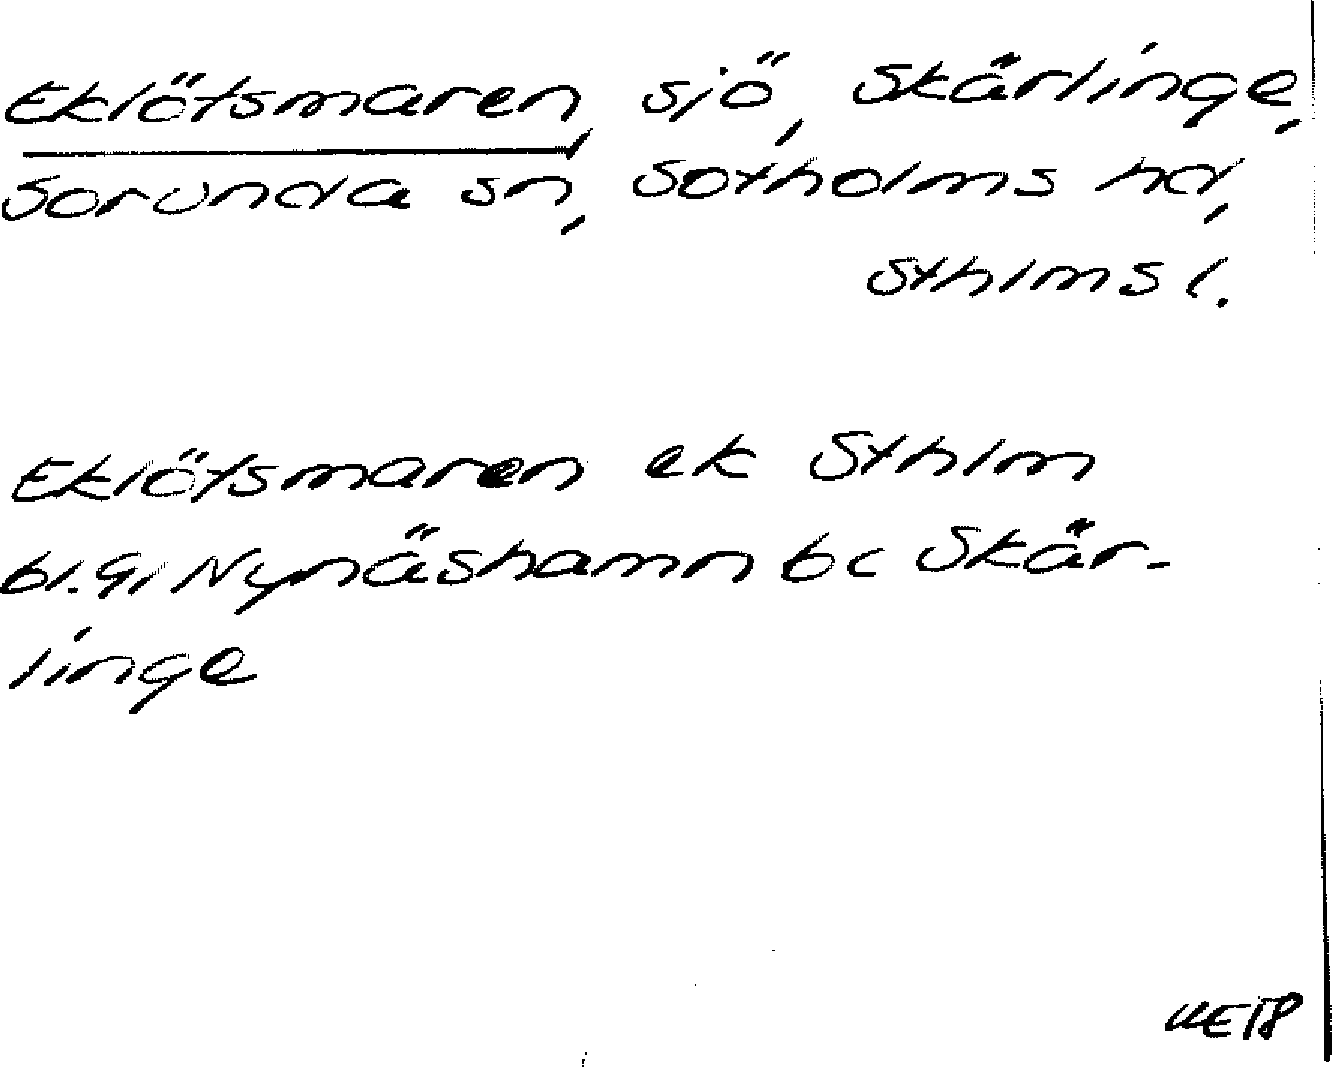 Eklötsmaren, sjö, Skärlinge,
Sorunda sn, Sotholms hd,
Sthlms l.
Eklötsmaren ek Sthlm
bl. 9, Nynäshamn bc Skär-
linge